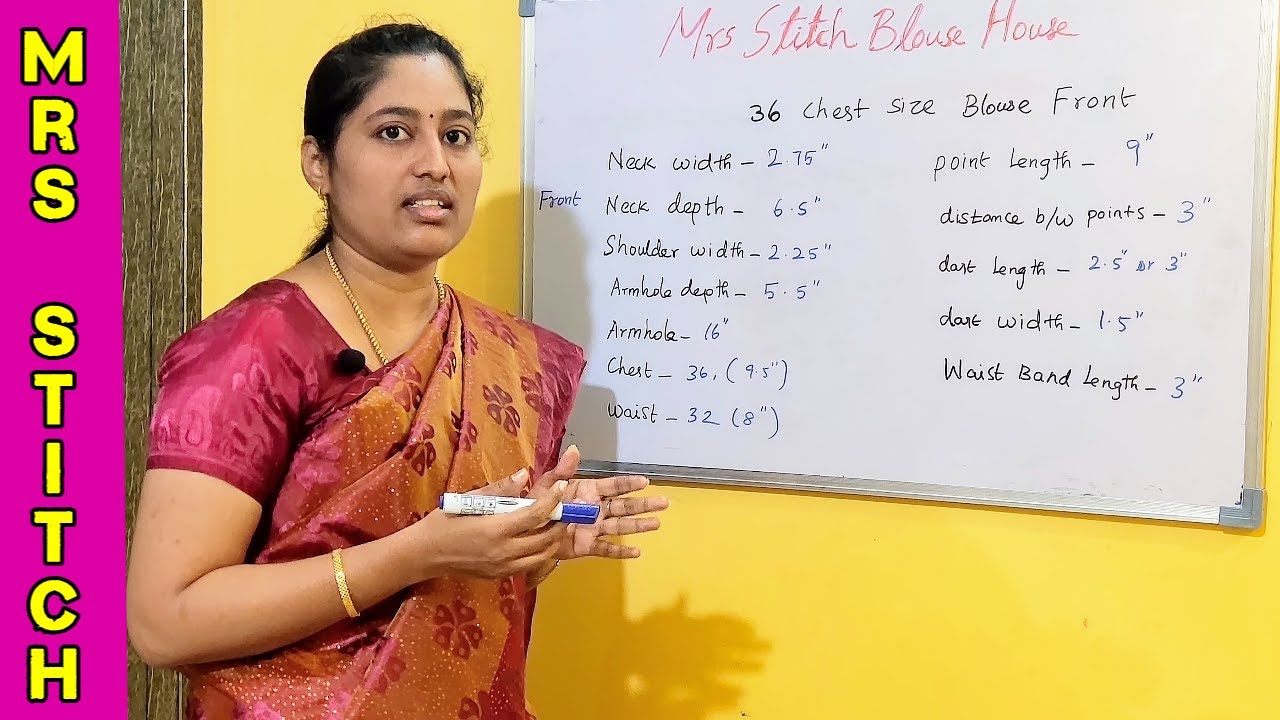 MRS STITCH
Mrs Stitch Blouse House
36 chest size Blouse Front
Neck width - 2.75"
Front Neck depth - 6.5"
Shoulder width - 2.25"
Armhole depth - 5.5"
Armhole - 16"
Chest - 36, (9.5")
Waist - 32 (8")
point Length - 9"
distance b/w points - 3"
dart Length - 2.5" or 3"
dart width - 1.5"
Waist Band Length - 3"